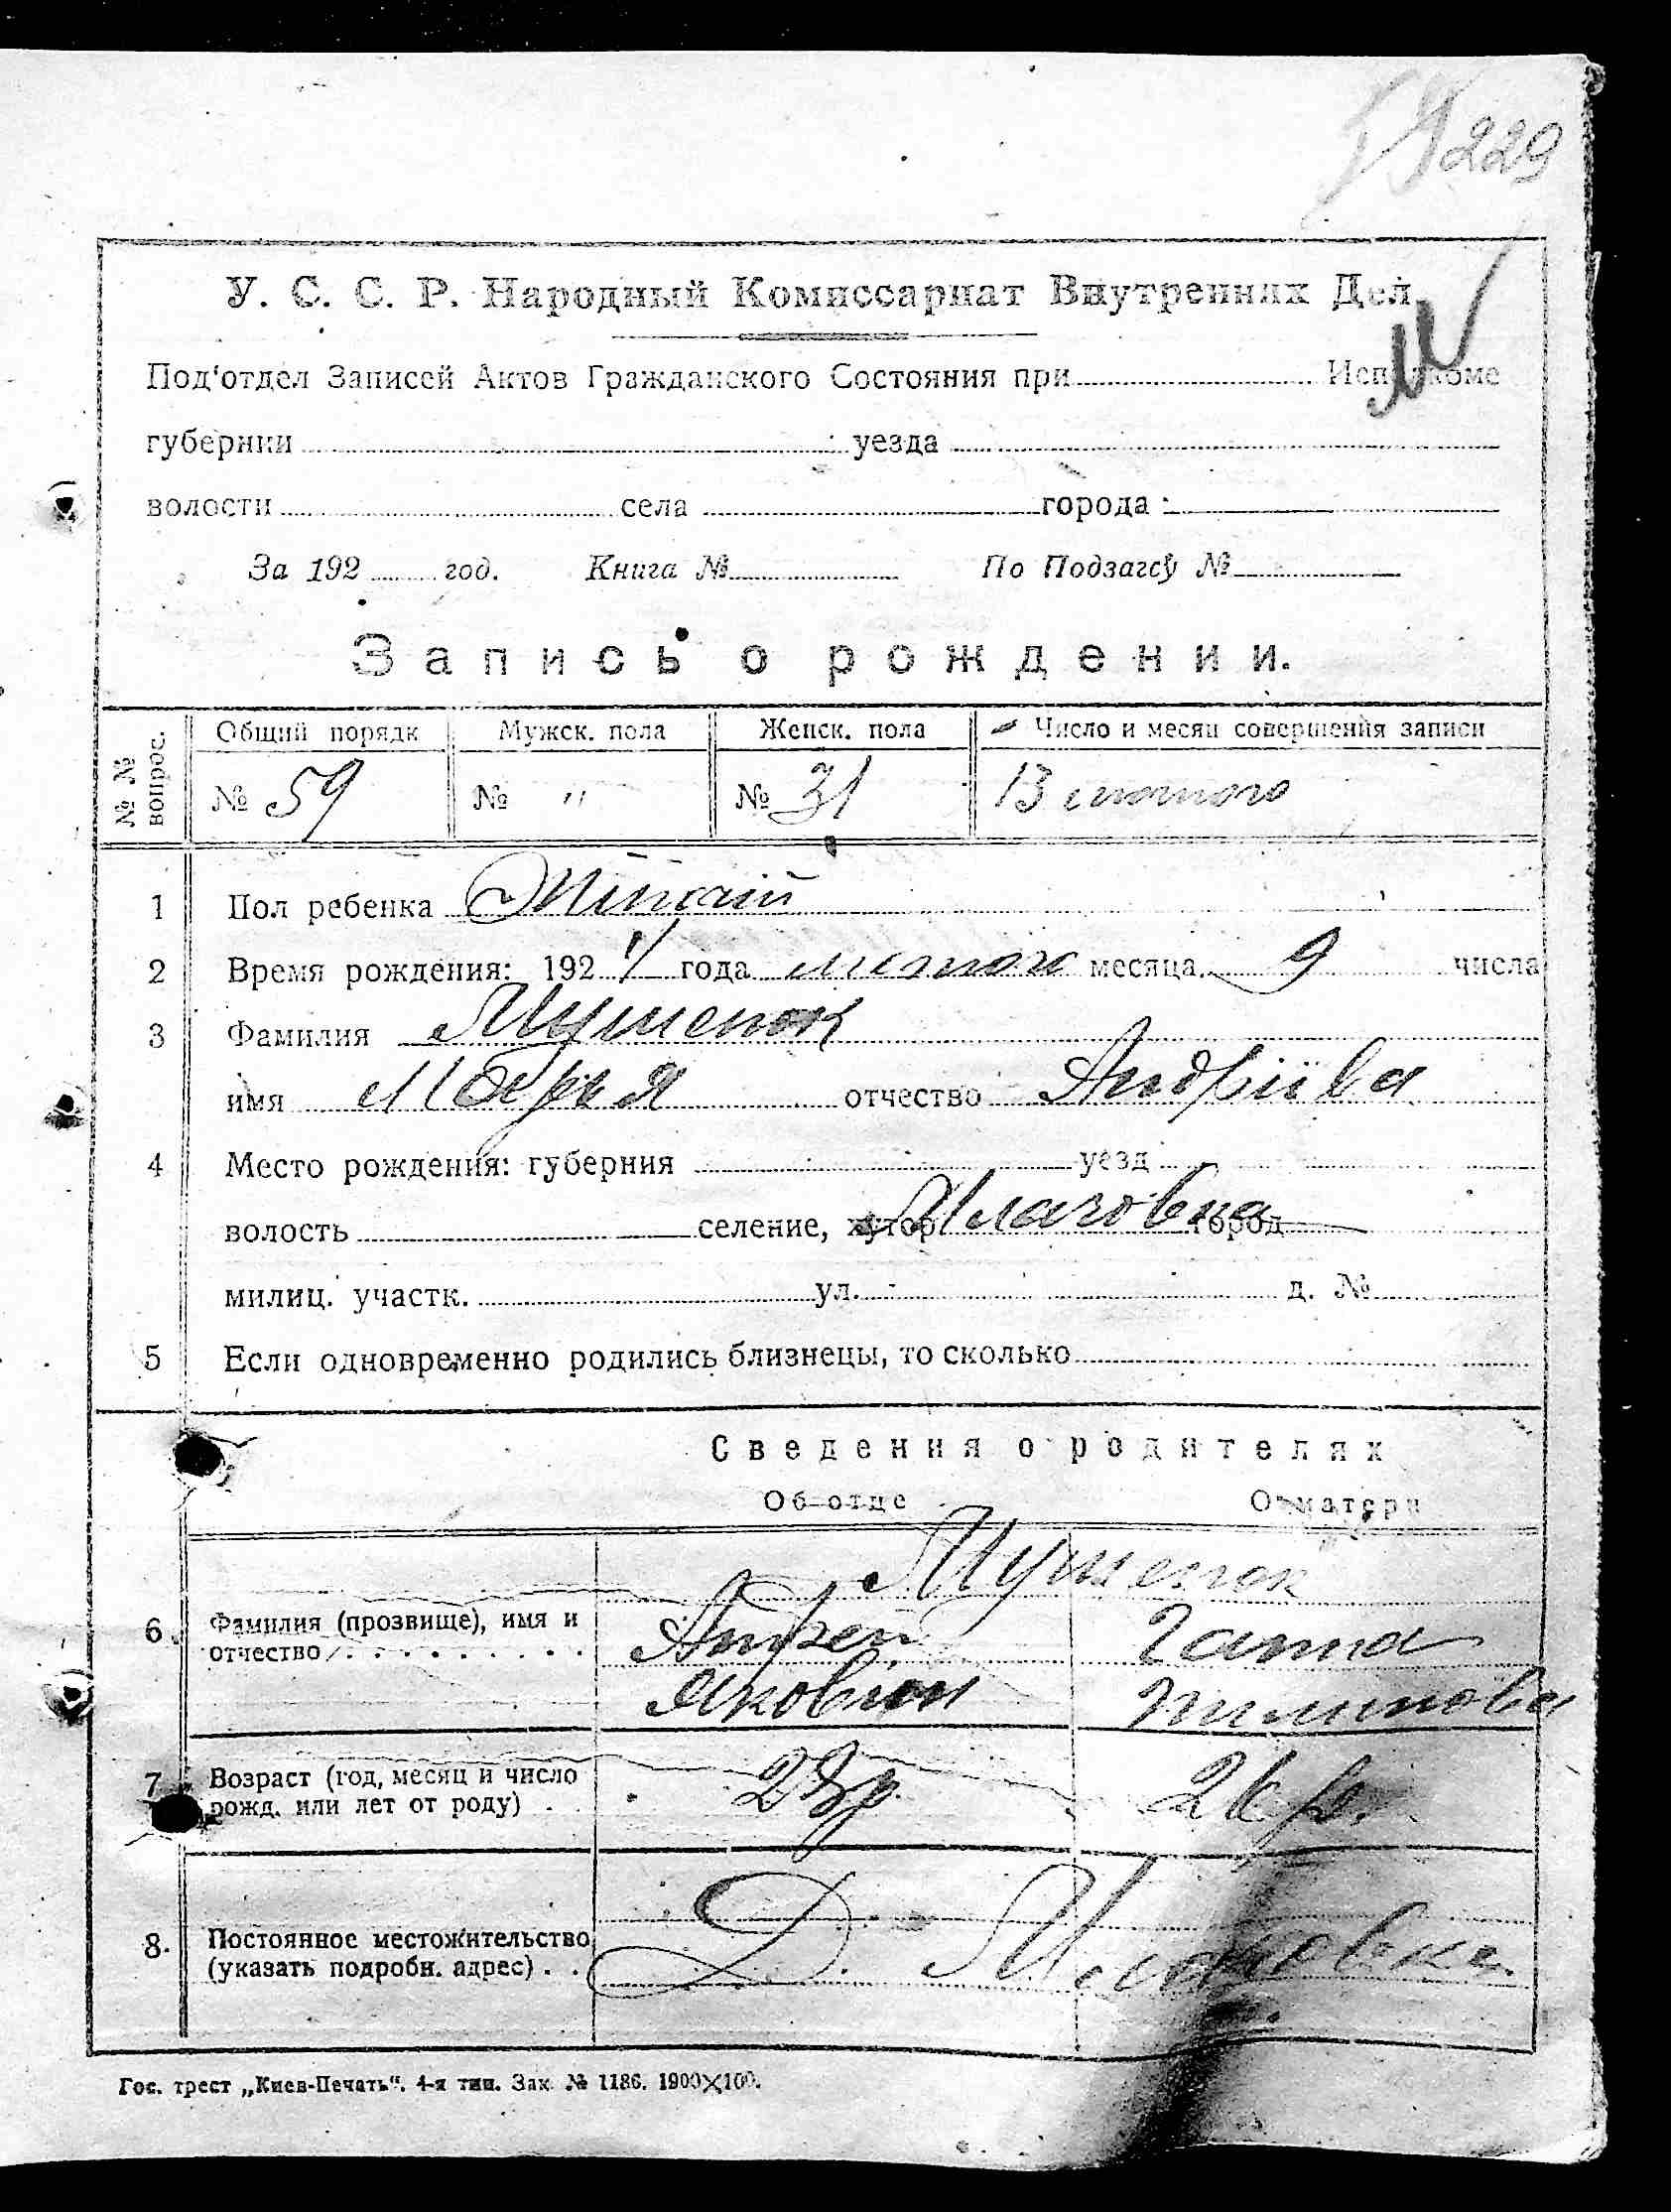 229
У. С. С. Р. Народный Комиссариат Внутренних Дел
Под'отдел Записей Актов Гражданского Состояния при Исполкоме
губернии уезда
волости села города
За 192 год. Книга № По Подзагсу №
Запись о рождении.
№ № вопрос. Общий порядк Мужск. пола Женск. пола Число и месяц совершения записи
№ 59 № " № 31 13 лютого
1 Пол ребенка Жіночій
2 Время рождения: 192 4 года лютого месяца 9 числа
3 Фамилия Мушенок
имя Марья отчество Андріівa
4 Место рождения: губерния уезд
волость селение, хутор город
милиц. участк. ул. д. №
5 Если одновременно родились близнецы, то сколько
Сведения о родителях
Об отце О матери
Мушенок
6. Фамилия (прозвище), имя и Андрей Гапка
отчество Яковлев
7 Возраст (год, месяц и число 23 р. 26 р.
рожд. или лет от роду)
8. Постоянное местожительство Д.
(указать подробн. адрес)
Гос. трест „Киев-Печать“. 4-я тип. Зак. № 1186. 1900×100.